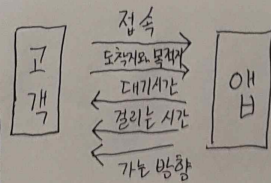 접속
고객
도착지와 목적지
대기시간
걸리는 시간
가는 방향
앱